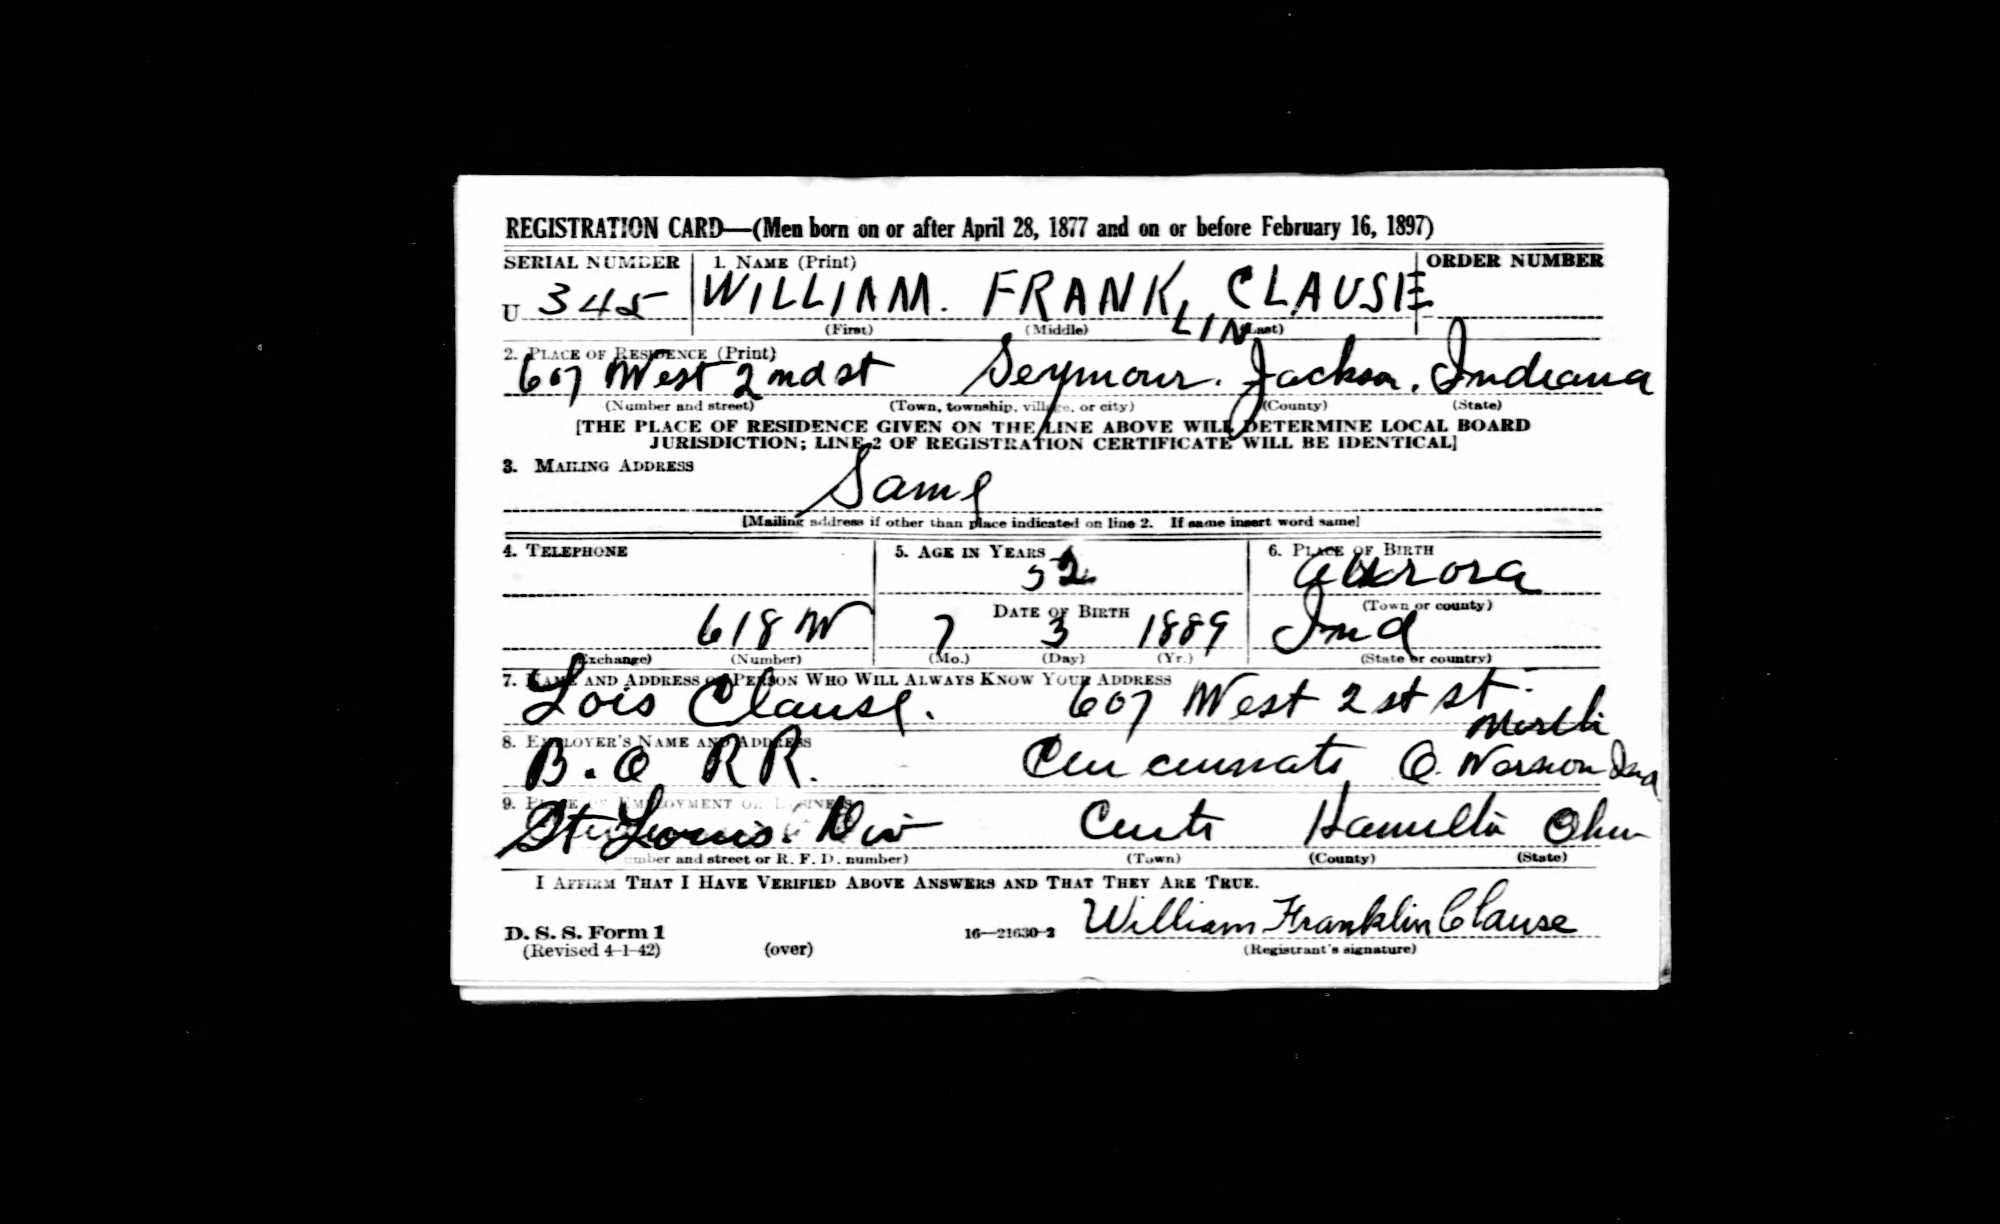 REGISTRATION CARD—(Men born on or after April 28, 1877 and on or before February 16, 1897)
SERIAL NUMBER 1. NAME (Print) ORDER NUMBER
U 345 WILLIAM. FRANKLIN CLAUSE
(First) (Middle) (Last)
2. PLACE OF RESIDENCE (Print)
607 West 2nd st Seymour. Jackson. Indiana
(Number and street) (Town, township, village, or city) (County) (State)
[THE PLACE OF RESIDENCE GIVEN ON THE LINE ABOVE WILL DETERMINE LOCAL BOARD
JURISDICTION; LINE 2 OF REGISTRATION CERTIFICATE WILL BE IDENTICAL]
3. MAILING ADDRESS
Same
[Mailing address if other than place indicated on line 2. If same insert word same]
4. TELEPHONE 5. AGE IN YEARS 6. PLACE OF BIRTH
52 Aurora
DATE OF BIRTH (Town or county)
618 W 7 3 1889 Ind
(Exchange) (Number) (Mo.) (Day) (Yr.) (State or country)
7. NAME AND ADDRESS OF PERSON WHO WILL ALWAYS KNOW YOUR ADDRESS
Lois Clause. 607 West 2 st st.
North
8. EMPLOYER'S NAME AND ADDRESS
B. O RR. Cincinnati O. Vernon Ind
9. PLACE OF EMPLOYMENT OR BUSINESS
St Louis. Div Centi Hamilton Ohio
(Number and street or R. F. D. number) (Town) (County) (State)
I AFFIRM THAT I HAVE VERIFIED ABOVE ANSWERS AND THAT THEY ARE TRUE.
William Franklin Clause
D. S. S. Form 1 16—21630-2
(Revised 4-1-42) (over) (Registrant's signature)